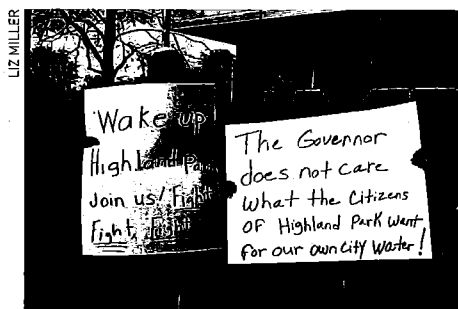 LIZ MILLER
Wake up
Highland Park
Join us! Fight
Fight, Fight
The Governor
does not care
what the Citizens
OF Highland Park want
for our own City Water!